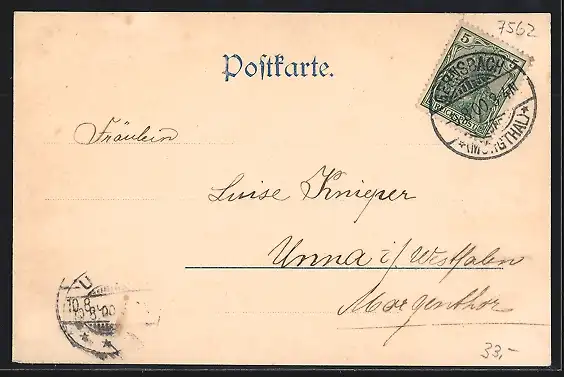 7562
Postkarte.
5 5
GERNSBACH
(MURGTHAL)
Fräulein
Luise Knieper
Unna i/Westfalen
Morgenthor
U
10.8.00
33,-